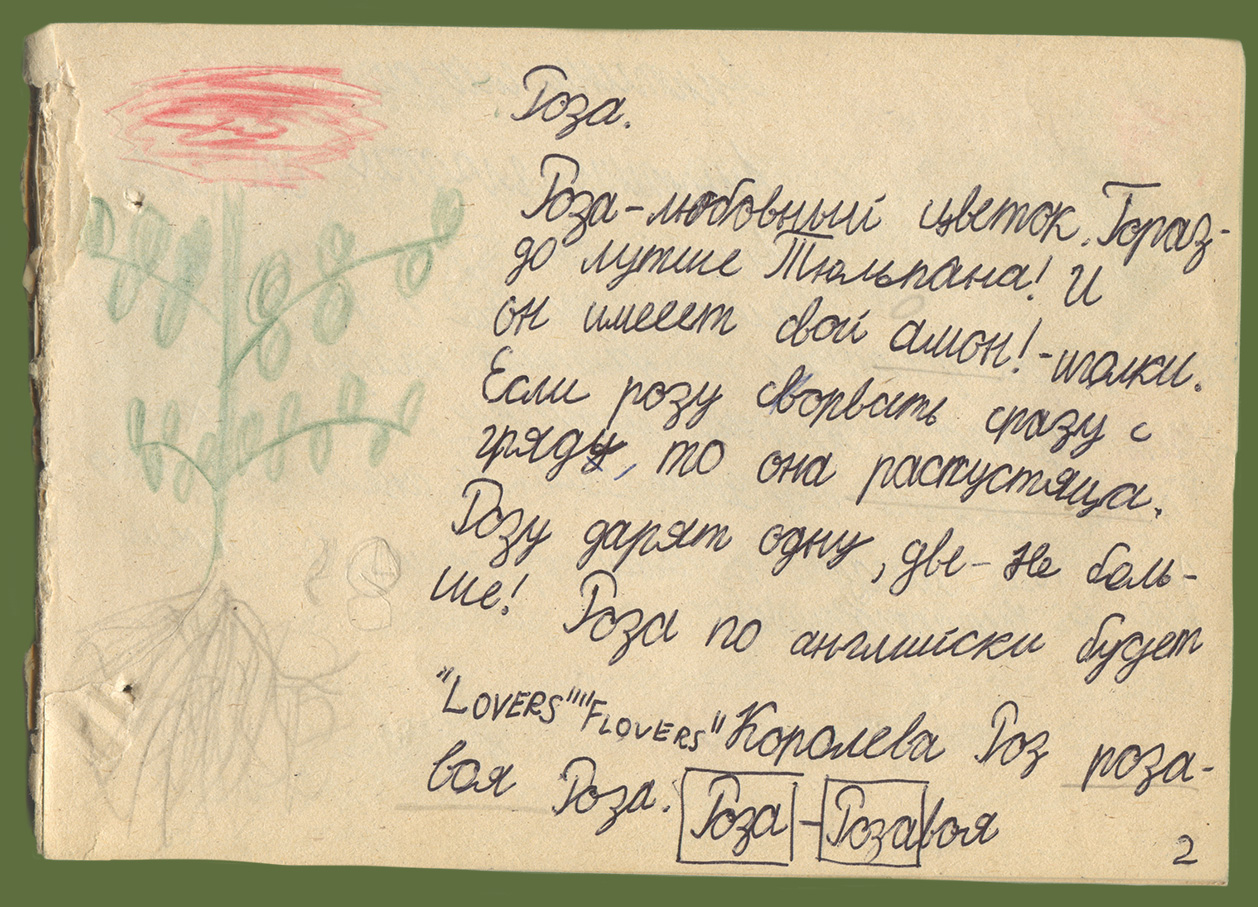 Роза.
Роза-любовный цветок. Гораз-
до лутше Тюльпана! И
он имееет свой амон!-иголки.
Если розу сворвать сразу с
гряды, то она распустяща.
Розу дарят одну, две- не боль-
ше! Роза по английски будет
"LOVERS""FLOVERS" Королева Роз роза-
вая Роза. Роза - Розавоя
2